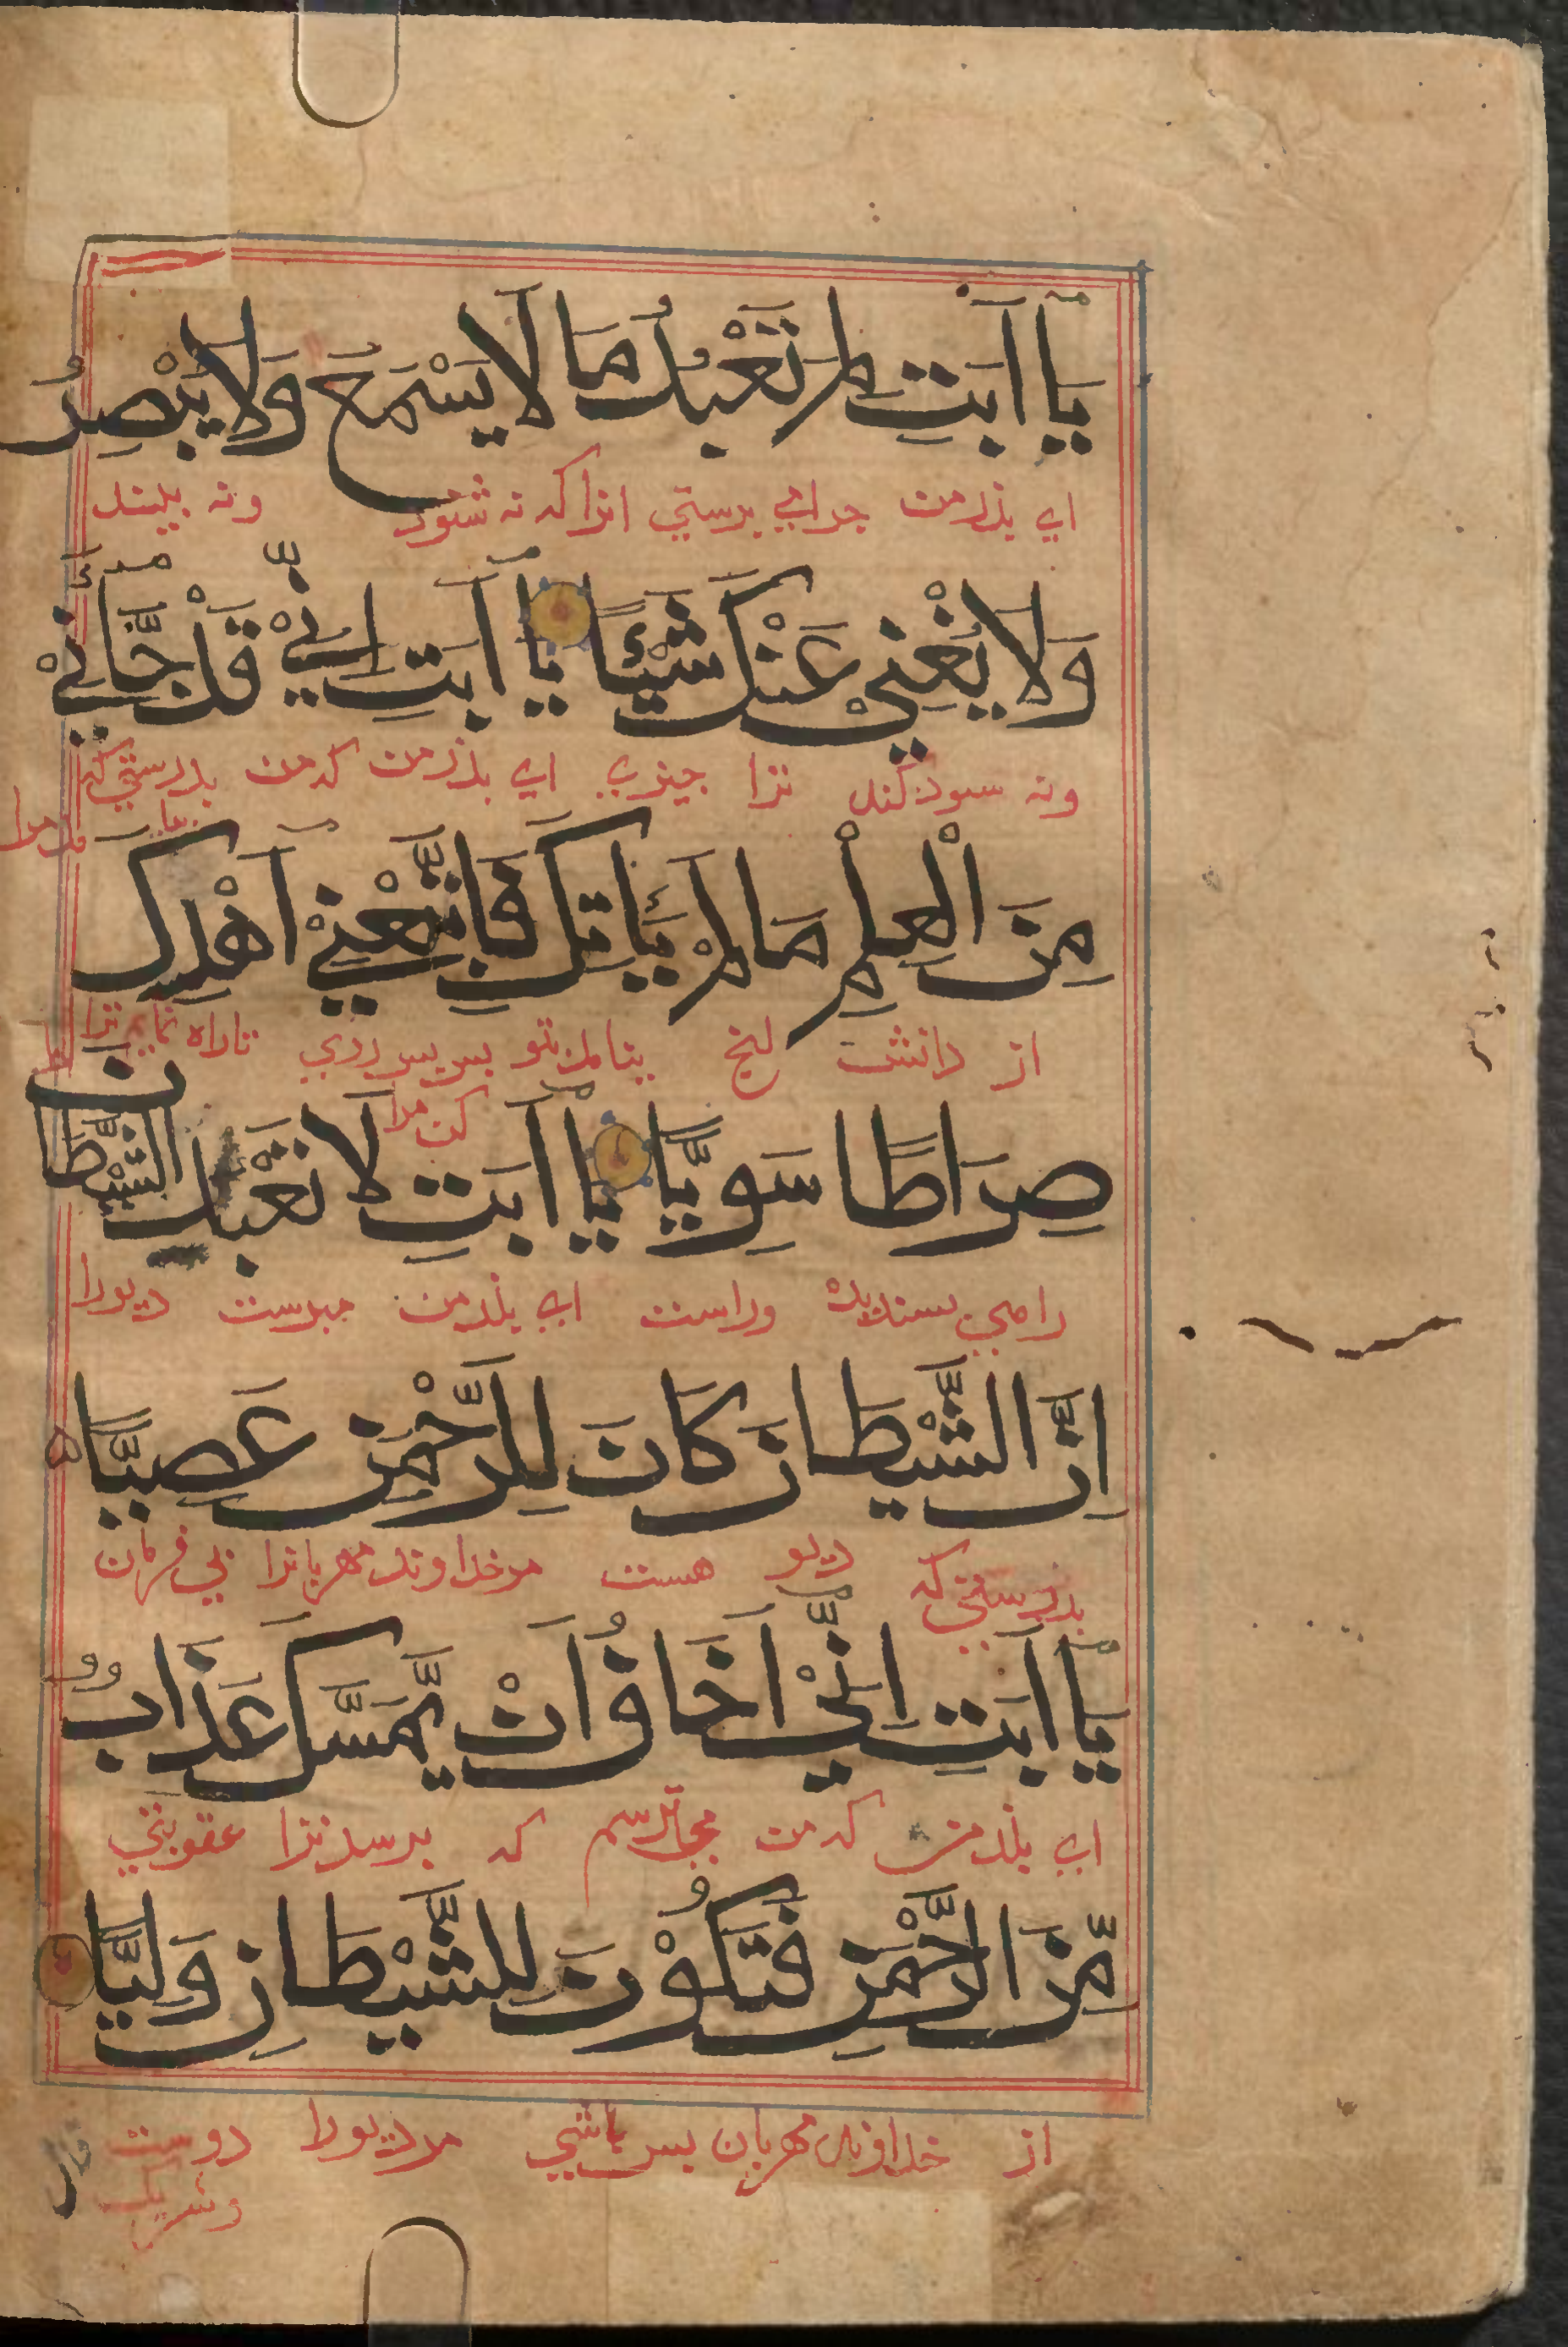 يَا اَبَتِ لِمَ تَعْبُدُ مَا لَا يَسْمَعُ وَلَا يُبْصِرُ
اي بذر من جرا مي برستي انرا كه نه شنود ونه بيند
وَلَا يُغْنِيْ عَنْكَ شَيْئًا يَا اَبَتِ اِنِّيْ قَدْ جَّاءَنِيْ
ونه سود كند ترا جيزي اي بذر من كه من بدرستي كه
مِنَ الْعِلْمِ مَا لَمْ يَأتِكَ فَاتَّبِعْنِيْ اَهْدِكَ
از دانش انج نيامد بتو بس بس روي تا راه نمايم ترا
كن مرا
صِرَاطًا سَوِيًّا يَا اَبَتِ لَا تَعْبُدِ الشَّيْطَانَ
راهي بسنديده وراست اي بذر من مبرست ديورا
اِنَّ الشَّيْطَانَ كَانَ لِلرَّحْمٰنِ عَصِيًّا
بدرستي كه ديو هست مر خداوند مهربانرا بي فرمان
يَا اَبَتِ اِنِّيْ اَخَافُ اَنْ يَّمَسَّكَ عَذَابٌ
اي بذر من كه من مي ترسم كه برسد ترا عقوبتي
مِّنَ الرَّحْمٰنِ فَتَكُوْنَ لِلشَّيْطَانِ وَلِيًّا
از خداوند مهربان بس باشي مر ديورا دوست
وشريك